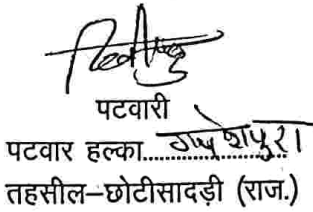 पटवारी
पटवार हल्का.......गणेशपुरा
तहसील–छोटीसादड़ी (राज.)